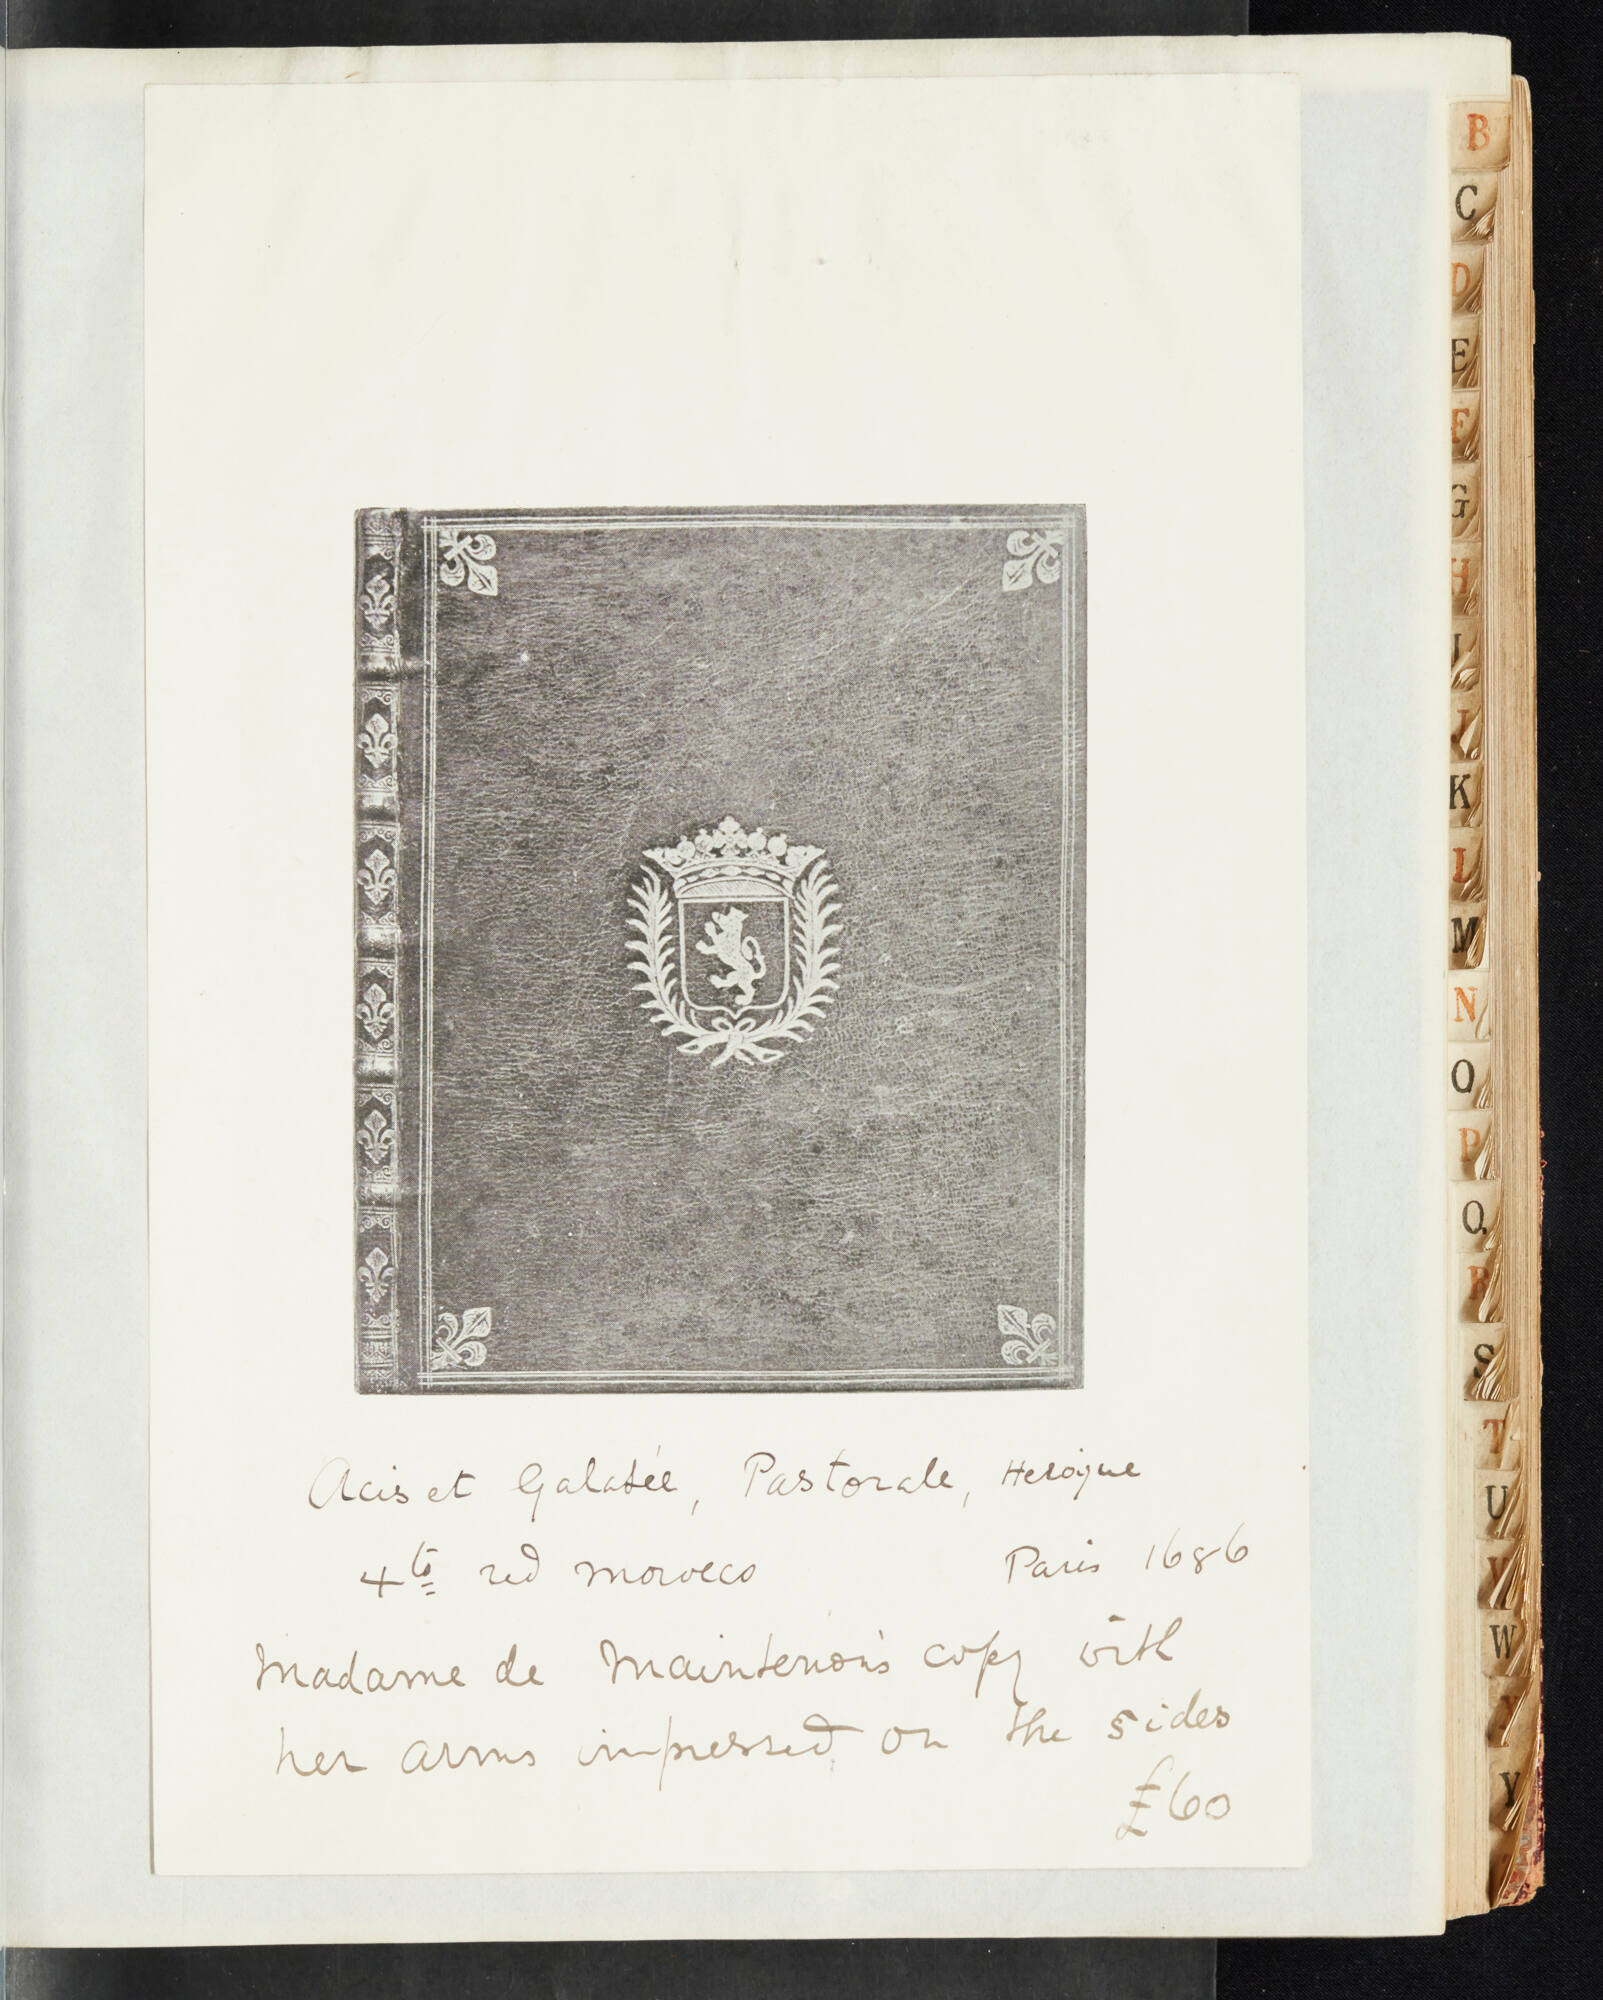 Acis et Galatée, Pastorale, Heroique
4to red morocco Paris 1686
Madame de Maintenon's copy with
her arms impressed on the sides
£60
B
C
D
E
F
G
H
I
J
K
L
M
N
O
P
Q
R
S
T
U
V
W
X
Y